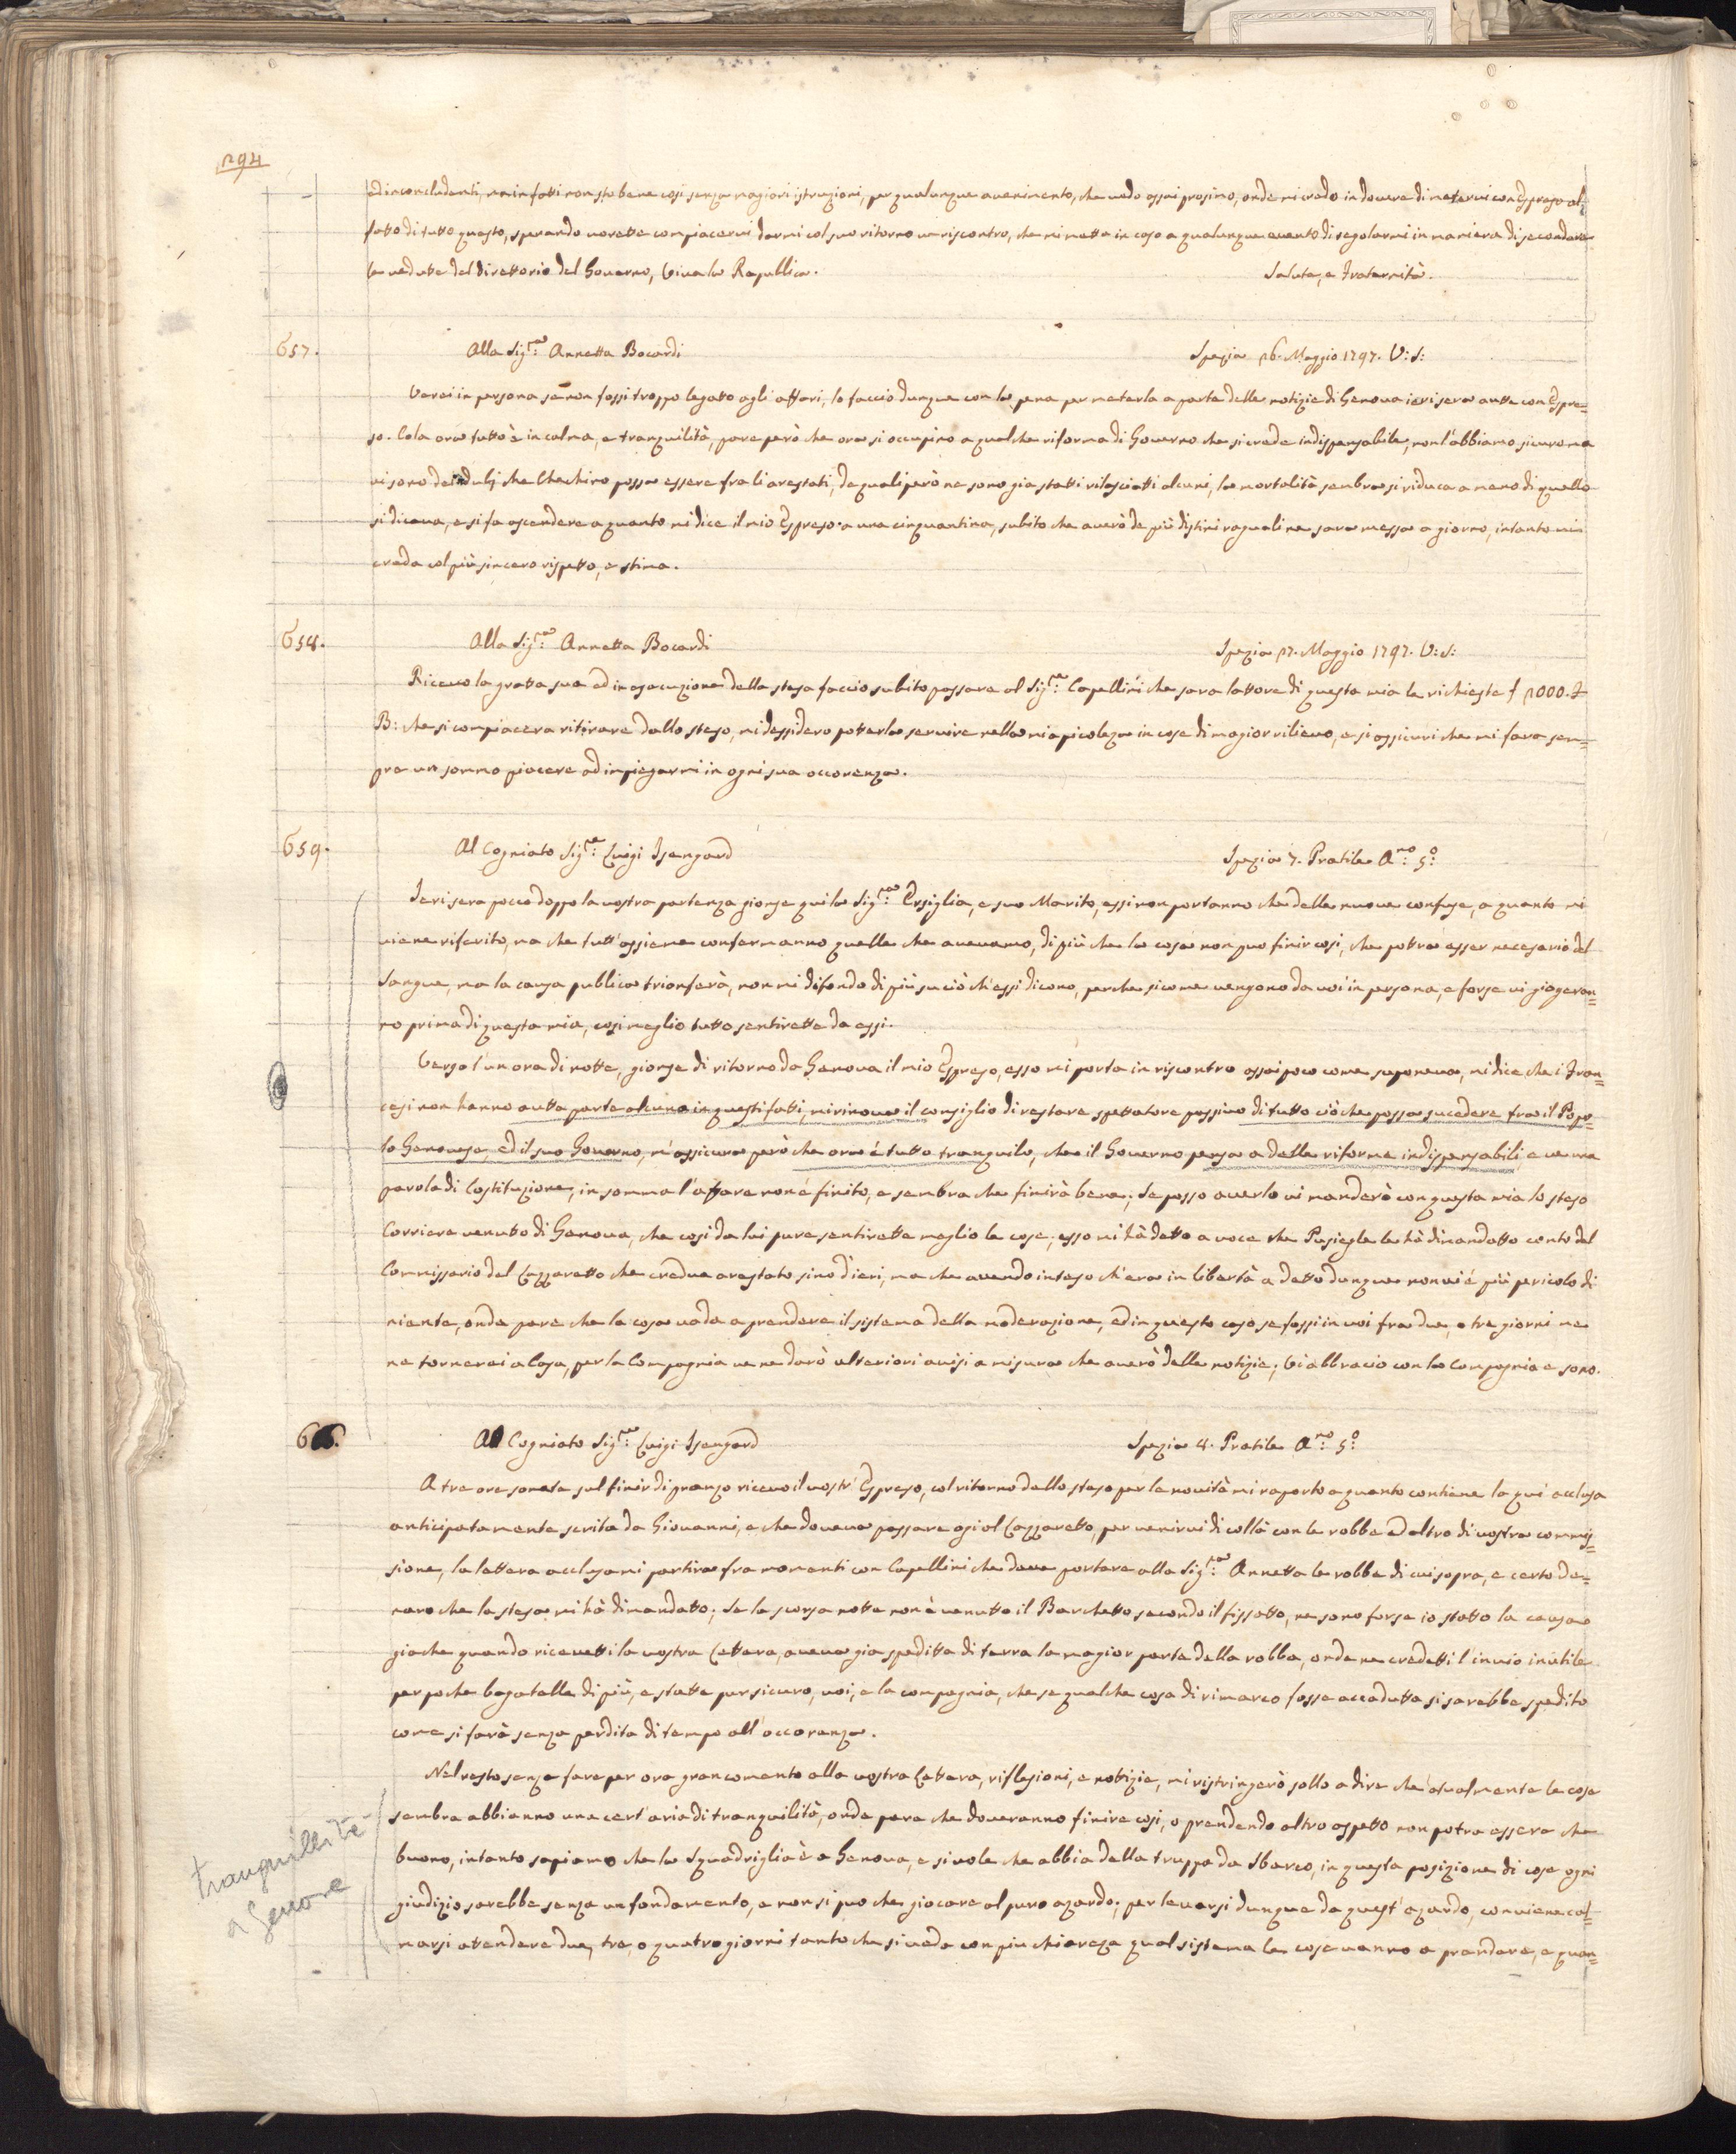 294
ed inconcludenti, ma in fatti non sto bene cosi senza magiori istruzioni, per qualunque avenimento, che vedo assai prosimo, onde mi credo in dovere di metervi con Espresso al
fatto di tutto questo, sperando vorette compiacervi darmi col suo ritorno un riscontro, che mi metta in caso a qualunque evento di regolarmi in maniera di secondare
le vedute del direttorio del Governo, Viva la Republica. Salute, e Fraternità.
657. Alla Sig:ra Annetta Bocardi Spezia 26. Maggio 1797. V:S:
Verei in persona se non fossi troppo legatto agli affari, lo faccio dunque con la pena per meterla a parte delle notizie di Genova ieri sera autte con Espre=
so. Cola ora tutto è in calma, e tranquilità, pare però che ora si occupino a qualche riforma di Governo che si crede indispensabile, non l'abbiamo sicuro ma
vi sono dei dubj che Chechino possa essere fra li arestati, da quali però ne sono gia statti rilasciatti alcuni, la mortalità sembra si riduca a meno di quello
si diceva, e si fa ascendere a quanto mi dice il mio Espreso a una cinquantina, subito che averò de più distini raguali ne sara messa a giorno, intanto mi
creda col più sincero rispetto, e stima.
658. Alla Sig:ra Annetta Bocardi Spezia 27. Maggio 1797. V:S:
Ricevo la gratta sua ed in esecuzione della stesa faccio subito passare al Sig:re Capellini che sara lattore di questa mia le richieste f 2000. F
B: che si compiacera ritirare dallo steso, mi dessidero potterla servire nella mia picoleza in cose di magior rilievo, e si assicuri che mi fara sem=
pre un sommo piacere ad impiegarmi in ogni sua occorenza.
659. Al Cogniato Sig:re Luigi Isengard Spezia 7. Pratile A:no 5:o
Ieri sera pocco doppo la vostra partenza gionse qui la Sig:ra Ersiglia, e suo Marito, essi non portanno che delle nuove confuse, a quanto mi
viene riferito, ma che tutt'assieme confermanno quelle che avevamo, di più che la cosa non puo finir cosi, che potra esser necesario del
Sangue, ma la causa publica trionferà, non mi difondo di più su ciò ch'essi dicono, perche sicome vengono da voi in persona, e forse vi giogeran=
no prima di questa mia, cosi meglio tutto sentirette da essi.
Verso l'un ora di notte, gionse di ritorno da Genova il mio Espreso, esso mi porta in riscontro assai poco come suponeva, mi dice che i Fran=
cesi non hanno autta parte alcuna in questi fatti, mi rinova il consiglio di restare spettatore passivo di tutto ciò che possa sucedere tra il Popo=
lo Genovese, ed il suo Governo, m'assicura però che ora é tutto tranquilo, che il Governo pensa a delle riforme indispensabili, e ve una
parola di Costituzione, in somma l'affare non é finito, e sembra che finirà bene; Se posso averlo vi manderò con questa mia lo steso
Corriere venutto di Genova, che cosi da lui pure sentirette meglio le cose; esso mi hà detto a voce che Pusiegle le hà dimandatto conto del
Commissario del Lazzaretto che credea arestato sino d'ieri, ma che avendo inteso ch'era in libertà a detto dunque non vi é più pericolo di
niente, onde pare che la cosa vada a prendere il sistema della moderazione, ed in questo caso se fossi in voi fra due, o tre giorni me
ne tornerei a Casa, per la Compagnia ve ne darò ulteriori avisi a misura che averò delle notizie; Vi abbracio con la Compagnia e sono.
Al Cogniato Sig:re Luigi Isengard Spezia 8. Pratile A:no 5:o
A tre ore sonate sul finir di pranzo ricevo il vostr' Espreso, col ritorno dello steso per le novità mi raporto a quanto contiene la qui acclusa
anticipatamente scrita da Giovanni, e che doveva passare ogi al Lazzaretto, per venirvi di collà con le robbe ed altro di vostra commis=
sione, la lettera acclusami partira fra momenti con Capellini che deve portare alla Sig:ra Annetta le robbe di cui sopra, e certo de=
naro che la stesa mi hà dimandatto; Se la scorsa notte non è venutto il Barchetto secondo il fissatto, ne sono forse io statto la causa
gia che quando ricevetti la vostra Lettera, aveva gia speditta di terra la magior parte della robba, onde ne credetti l'invio inutile
per poche bagatelle di più, e statte pur sicuro, voi, e la compagnia, che se qualche cosa di rimarco fosse accadutta si sarebbe spedito
come si farà senza perdita di tempo all'occorenza.
Nel resto senza fare per ora gran comento alla vostra Lettera, riflesioni, e notizie, mi ristringerò sollo a dire che atualmente le cose
sembra abbianno una cert'aria di tranquilità, onde pare che doveranno finire cosi, o prendendo altro aspetto non potra essere che
buono, intanto sapiamo che la Squadriglia è a Genova, e si vole che abbia della truppa da Sbarco, in questa posizione di cose ogni
giudizio sarebbe senza un fondamento, e non si puo che giocare al puro azardo; per levarsi dunque da quest'azardo, conviene cal=
marsi attendere due, tre, o quatro giorni tanto che si veda con piu chiareza qual sistema le cose vanno a prendere, e quan=
tranquillité
a Genove